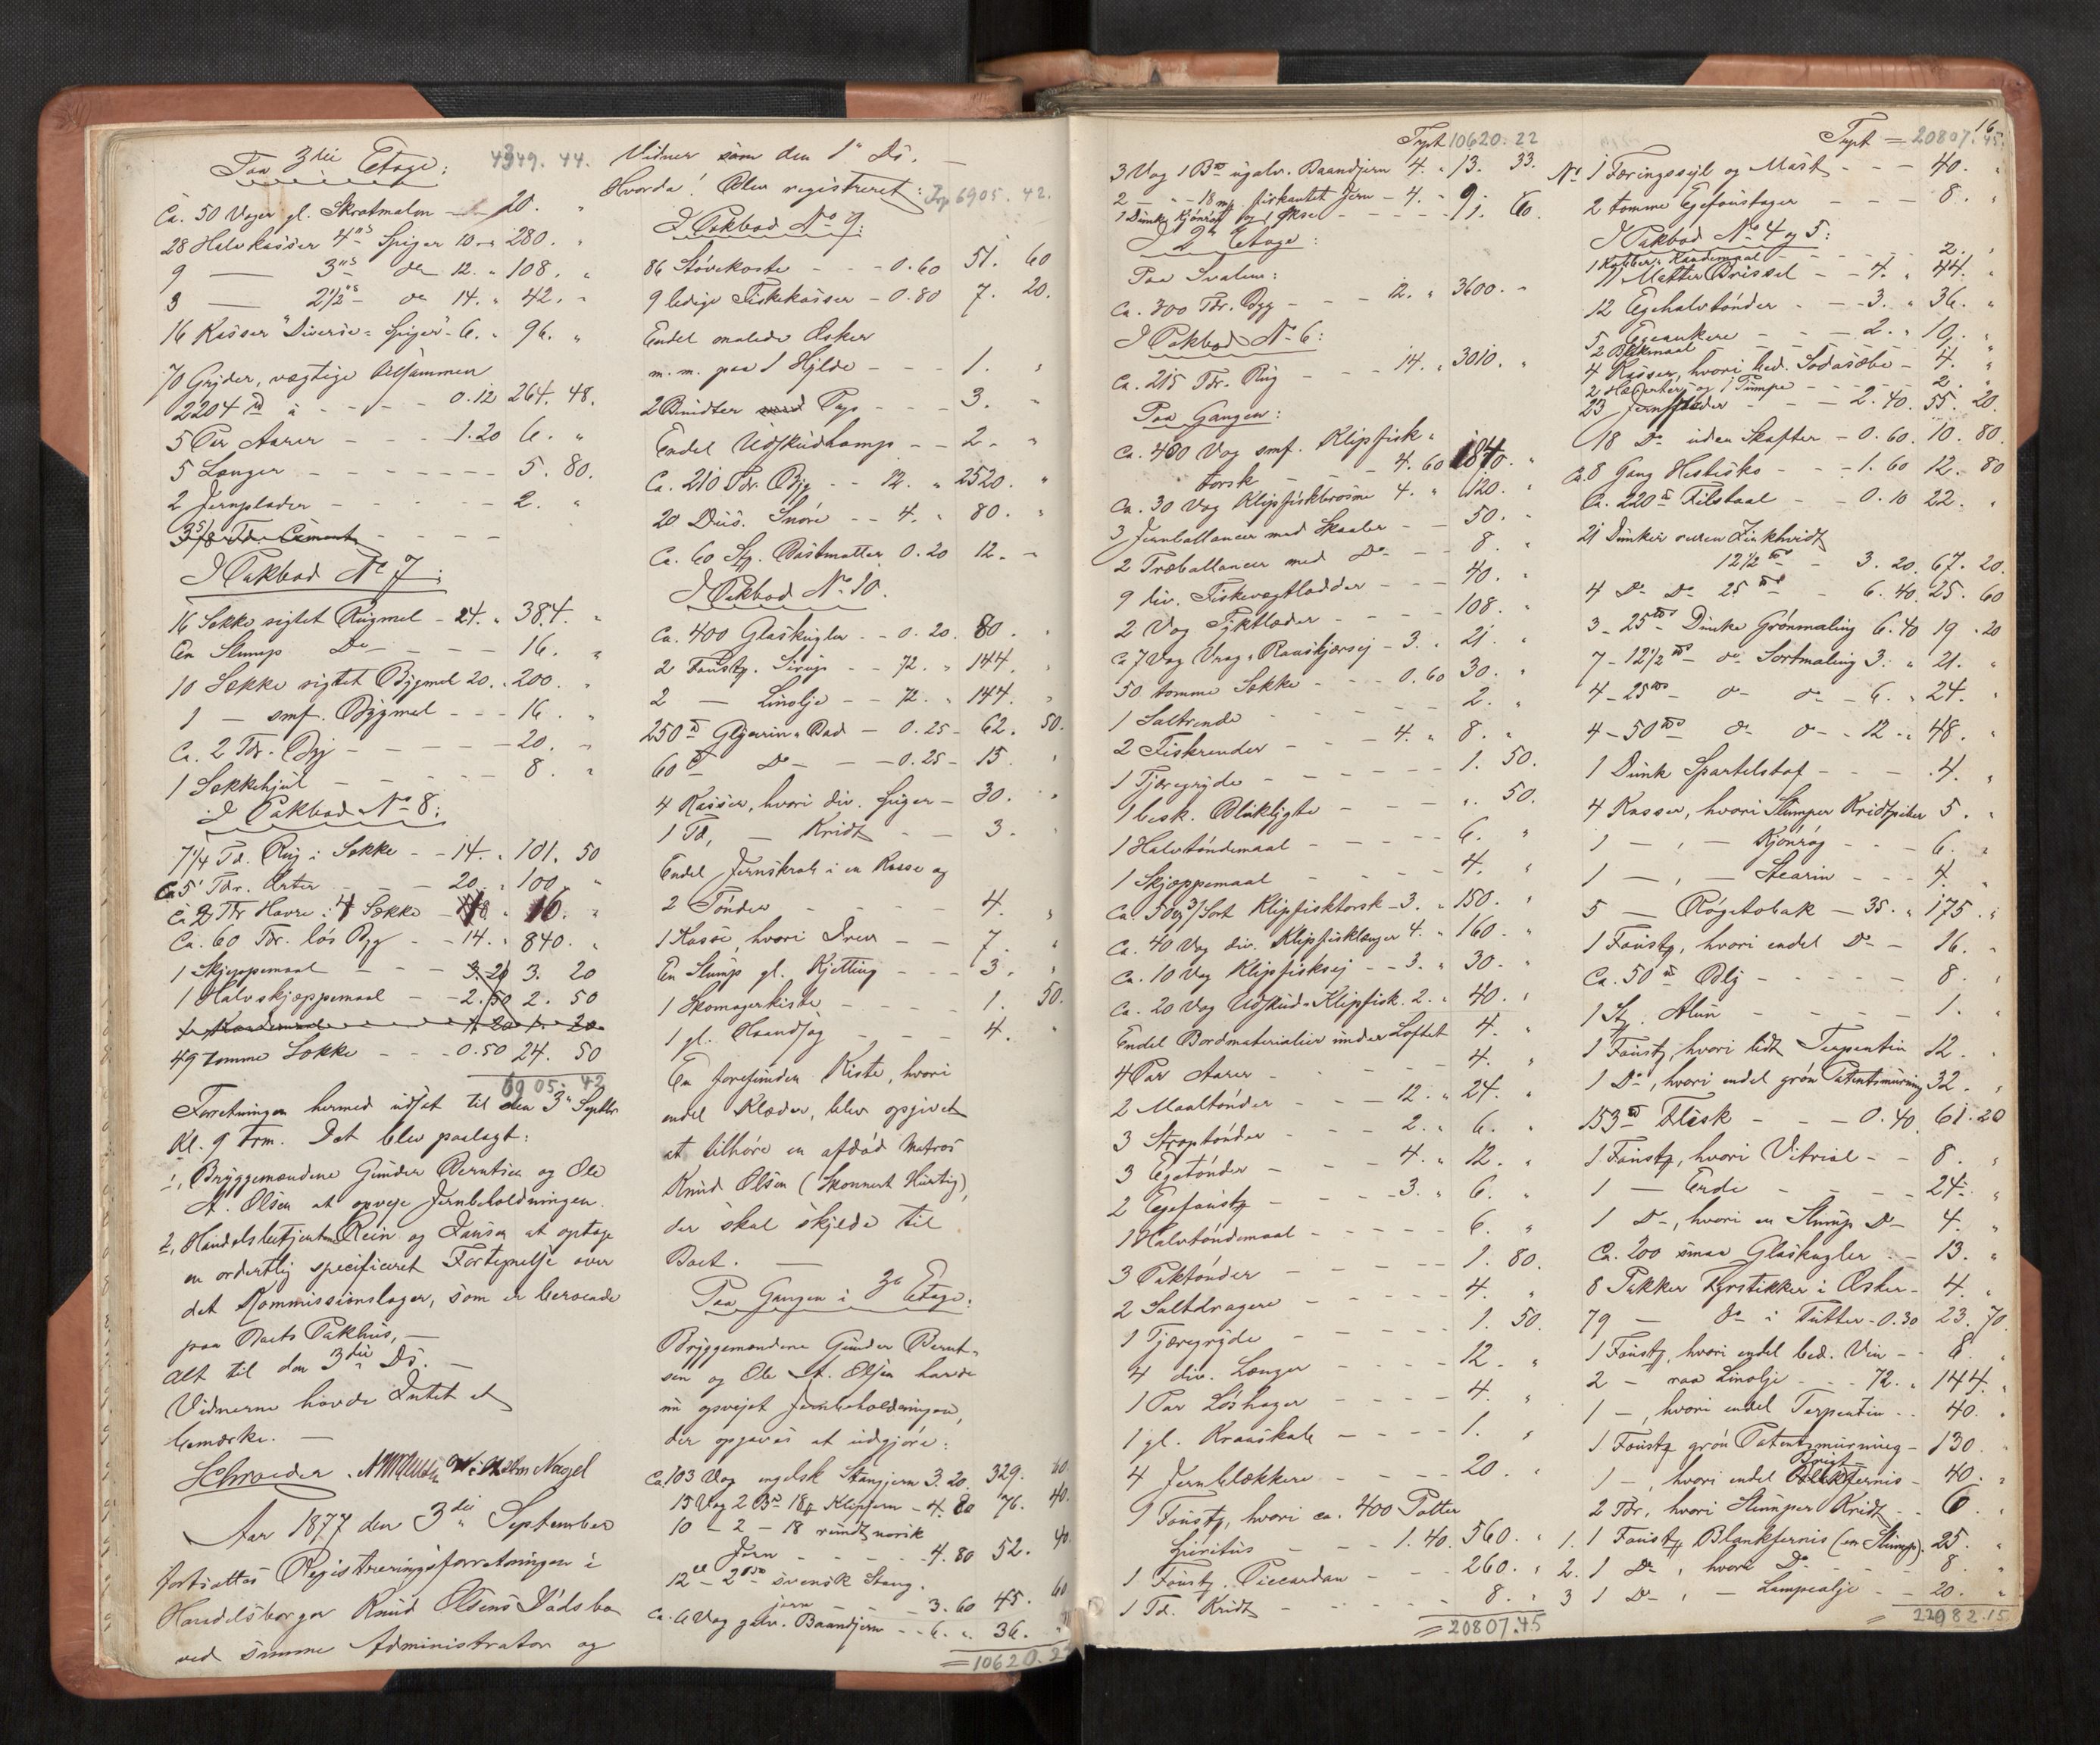 Paa 3die Etage: 4349. 44.
Ca. 50 Voger gl. Skrotmalm - 20. "
28 Halvkasser 4"s Spiger 10. " 280. "
9 — 3"s do 12. " 108. "
3 — 2 1/2"s do 14. " 42. "
16 Kasser "Diverse" Spiger - 6. " 96. "
70 Gryder, vægtige tilsammen
2204 ℔ à - - - 0.12 264. 48.
5 Par Aarer - - - 1.20 6. "
5 Længer - - - 5. 80.
2 Jernplader - - - 2. "
3 5/8 Tdr Cement - - -
I Pakbod No 7:
16 Sække sigtet Rugmel - 24. " 384. "
En Slump Do - - - 16. "
10 Sække sigtet Bygmel 20. " 200. "
1 — smf. Bygmel - - - 16. "
Ca. 2 Tdr. Byg - - - 20. "
1 Sækkehjul - - - 8. "
I Pakbod No 8:
7 1/4 Td. Rug i Sække - - 14. " 101. 50
Ca 5 Tdr. Erter - - 20. " 100. "
Ca 2 Tdr Havre i 4 Sække - 8 " 16. "
Ca. 60 Tdr. løs Byg - - 14. " 840. "
1 Skjeppemaal - - - 3.20 3. 20
1 Halvskjæppemaal - - 2.50 2. 50
1 Kandemaal 1.20 1. 20
49 tomme Sække - - - 0.50 24. 50
6905. 42
Forretningen hermed udsat til den 3die Septbr
Kl. 9 Frm. Det blev paalagt:
1, Bryggemændene Gunder Berntsen og Ole
A. Olsen at opveje Jernbeholdningen.
2, Handelsbetjentene Rein og Jansen at optage
en ordentlig specificeret Fortegnelse over
det Kommissionslager, som er beroende
paa Boets Pakhus, —
alt til den 3die Ds. —
Vidnerne havde Intet at
bemærke. —
Schroeder. Wilhelm Nagel
Aar 1877 den 3die September
fortsattes Registreringsforretningen i
Handelsborger Knud Olsens Dødsbo
ved samme Administrator og
Vidner som den 1ste Ds. —
Hvorda! Blev registreret: Trp 6905. 42.
I Pakbod No 9:
86 Støvekoste - - - 0.60 51. 60
9 ledige Fiskekasser - 0.80 7. 20.
Endel malede Æsker
m. m. paa 1 Hylde - - - 1. "
2 Bundter Pap - - - 3. "
Endel Udskudhamp - - 2. "
Ca. 210 Tdr. Byg - - 12. " 2520. "
20 Dus. Snøre - - 4. " 80. "
Ca. 60 Stk. Bastmatter 0.20 12. "
I Pakbod No 10.
Ca. 400 Glaskugler - - 0.20. 80. "
2 Foustg. Sirup - - 72. " 144. "
2 — Linolje - - 72. " 144. "
250 ℔ Glycerin-Bad - 0.25 - 62. 50.
60 ℔ Do - - - 0.25 - 15. "
4 Kasser, hvori div. Spiger - 30. "
1 Td, — Kridt - - 3. "
Endel Jernskrab i en Kasse og
2 Tønder - - - 4. "
1 Kasse, hvori Drev - - 7. "
En Slump gl. Kjetting - - - 3. "
1 Skomagerkiste - - - 1. 50.
1 gl. Haandsag - - - 4. "
En forefunden Kiste, hvori
endel Klæder, blev opgivet
at tilhøre en afdød Matros
Knud Olsen (Skonnert Hurtig),
der skal skylde til
Boet. —
Paa Gangen i 3die Etage:
Bryggemændene Gunder Bernt-
sen og Ole A. Olsen havde
nu opvejet Jernbeholdningen,
der opgaves at udgjøre:
Ca. 103 Vog engelsk Stangjern 3.20. 329. 60.
15 Vog 2 Bd 18 ℔ Klipjern - 4.80 76. 40.
10 - 2 - 18 rundt norsk
Jern - - - 4.80 52. 40.
12 - 2 svensk Stang-
jern - - - 3.60 45. 60
Ca. 6 Vog galv. Baandjern - - 6. " 36. "
= 10620. 22
Trpt 10620: 22
3 Vog 1 Bd ugalv. Baandjern 4. " 13. 33.
2 - - 18 mk firkantet Jern - 4. " 9. "
1 Dunk Kjønrøg og 1 Økse - - - 1. 60.
I 2den Etage:
Paa Svalen:
Ca. 300 Tdr. Byg - - - 12. " 3600. "
I Pakbod No 6:
Ca. 215 Tdr. Rug - - - 14. " 3010. "
Paa Gangen:
Ca. 400 Vog smf. Klipfisk-
torsk - - - 4.60 1840. "
Ca. 30 Vog Klipfiskbrosme 4. " 120. "
3 Jernballancer med Skaaler - - 50. "
2 Træballancer med Do - - 8. "
9 div. Fiskevegtlodder - - - 40. "
2 Vog Tyktlæder - - - 108. "
Ca 7 Vog Vrag-Rauskjærsej - 3. " 21. "
50 tomme Sække - - - 0.60 30. "
1 Saltrende - - - 2. "
2 Fiskrender - - - 4. " 8. "
1 Tjæregryde - - - 1. 50.
1 besk. Bliklygte - - - ". 50.
1 Halvtøndemaal - - - 6. "
1 Skjæppemaal - - - 4. "
Ca. 50 Vog 3/Sort Klipfisktorsk - 3. " 150. "
Ca. 40 Vog div. Klipfisklænger 4. " 160. "
Ca. 10 Vog Klipfisksej - - 3. " 30. "
Ca. 20 Vog Udskud-Klipfisk. 2. " 40. "
Endel Bordmaterialier under Loftet 4. "
4 Par Aarer - - - 4. "
2 Maaltønder - - - 12. " 24. "
3 Straptønder - - - 2. " 6. "
3 Egetønder - - - 4. " 12. "
2 Egefoustg - - - 3. " 6. "
1 Halvtøndemaal - - - 6. "
3 Paktønder - - - 1. 80.
2 Saltdragere - - - 4. "
1 Tjæregryde - - - 1. 50.
4 div. Længer - - - 12. "
1 Par Løshager - - - 4. "
1 gl. Kraaskab - - - 1. "
4 Jernblokkere - - - 20. "
1 Foustg, hvori ca. 400 Potter
Spiritus - - - 1.40. 560. "
1 Foustg. Piccardan - - - 260. "
1 Td. Kridt - - - 8. "
= 20807.45
16
Trpt = 20807. 45.
No 1 Færingssejl og Mast - - - 40. "
2 tomme Egefoustager - - - 8. "
I Pakbod No 4 og 5:
1 Kobber-Kandemaal - - - 2. "
11 Matter Brissel - - 4. " 44. "
12 Egehalvtønder - - - 3. " 36. "
5 Egeankere - - - 2. " 10. "
2 Blikmaal - - - 1. "
4 Kasser, hvori bed. Sodasæbe - 4. "
2 Hæverter og 1 Pumpe - - - 2. "
23 Jernspader - - - 2.40. 55. 20.
18 Do uden Skafter - 0.60. 10. 80.
Ca. 8 Gang Hestesko - - - 1.60 12. 80
Ca. 220 ℔ Filstaal - - 0.10 22. "
21 Dunker reven Zinkhvidt
12 1/2 ℔s - 3.20. 67. 20.
4 Do Do 25 ℔s - 6.40. 25. 60
3 - 25 ℔s Dunke Grønmaling 6.40 19. 20
7 - 12 1/2 ℔s do Sortmaling 3. " 21. "
4 - 25 ℔s do do - 6. " 24. "
4 - 50 ℔s do do - 12. " 48. "
1 Dunk Spartelstof - - - 4. "
4 Kasser, hvori Slumper Kridtpiber 5. "
1 - , - Kjønrøg - - - 6. "
1 - , - Stearin - - - 4. "
5 — Røgetobak - 35. " 175. "
1 Foustg, hvori endel Do - 16. "
Ca. 50 ℔ Bly - - - 8. "
1 St. Alun - - - 1. "
1 Foustg, hvori lidt Terpentin 12. "
1 Do, hvori endel grøn Patentmurning 32. "
153 ℔ Flesk - - - 0.40. 61. 20
1 Foustg, hvori Vitriol - - 8. "
1 — Erde - - - 24. "
1 Do, hvori en Slump Do - 4. "
Ca. 200 smaa Glaskugler - - 13. "
8 Pakker Fyrstikker i Æsker - 4. "
79 — do i Tutter - 0.30 23. 70.
1 Foustg, hvori endel bed. Vin - - 8. "
2 - raa Linolje - - - 72. " 144. "
1 - , hvori endel Terpentin - - 40. "
1 Foustg grøn Patentmurning - 130. "
1 - , hvori endel fernis - 40. "
2 Tdr, hvori Slumper Kridt - - 6. "
1. 1 Foustg Blankfernis (en Slump). 25. "
2. 1 Do, hvori Do - - - 8. "
3 1 Do, - Lampeolje - - 20. "
22982.15